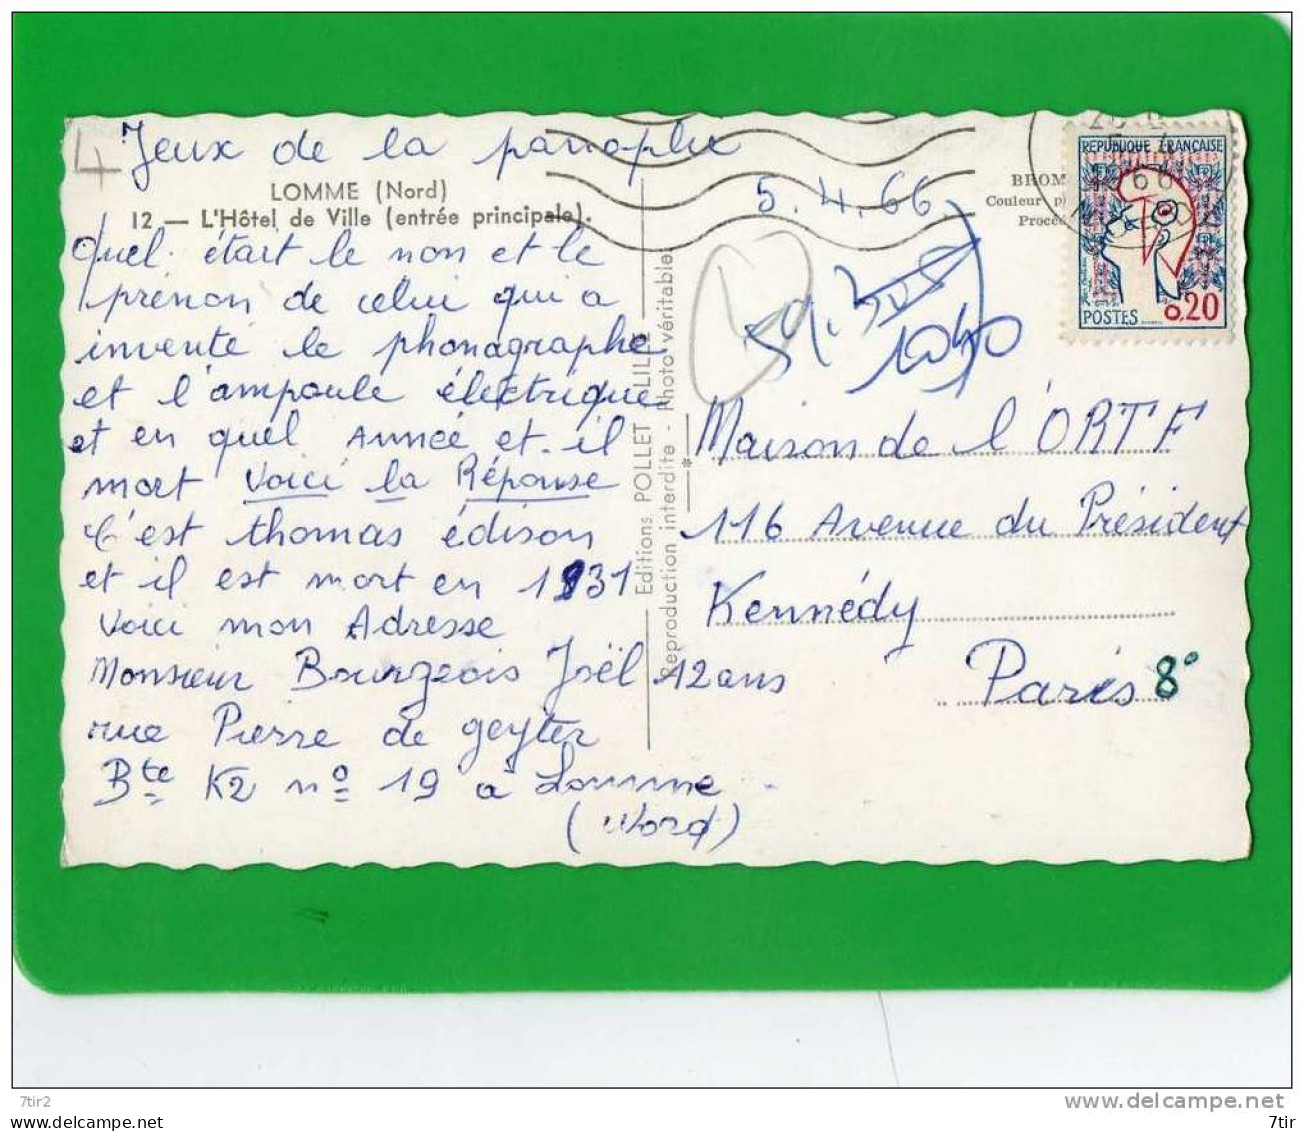 4
Jeux de la panoplie
LOMME (Nord)
12 — L'Hôtel de Ville (entrée principale).
Quel était le non et le
prénon de celui qui a
inventé le phonographe
et l'ampoule électrique
et en quel Année et il
mort Voici la Réponse
C'est thomas édison
et il est mort en 1931
Voici mon Adresse
Monsieur Bourgeois Joël 12 ans
rue Pierre de geyter
Bte K2 nº 19 à Lomme
(Nord)
Editions POLLET - LILLE
Reproduction interdite - Photo véritable
5.4.66
BROM
Couleur p
Procéd
66
REPUBLIQUE FRANÇAISE
POSTES
0,20
Maison de l'ORTF
116 Avenue du Président
Kennédy
Paris 8°
7tir2
delcampe.net
7tir.Delcampe.net
7tir